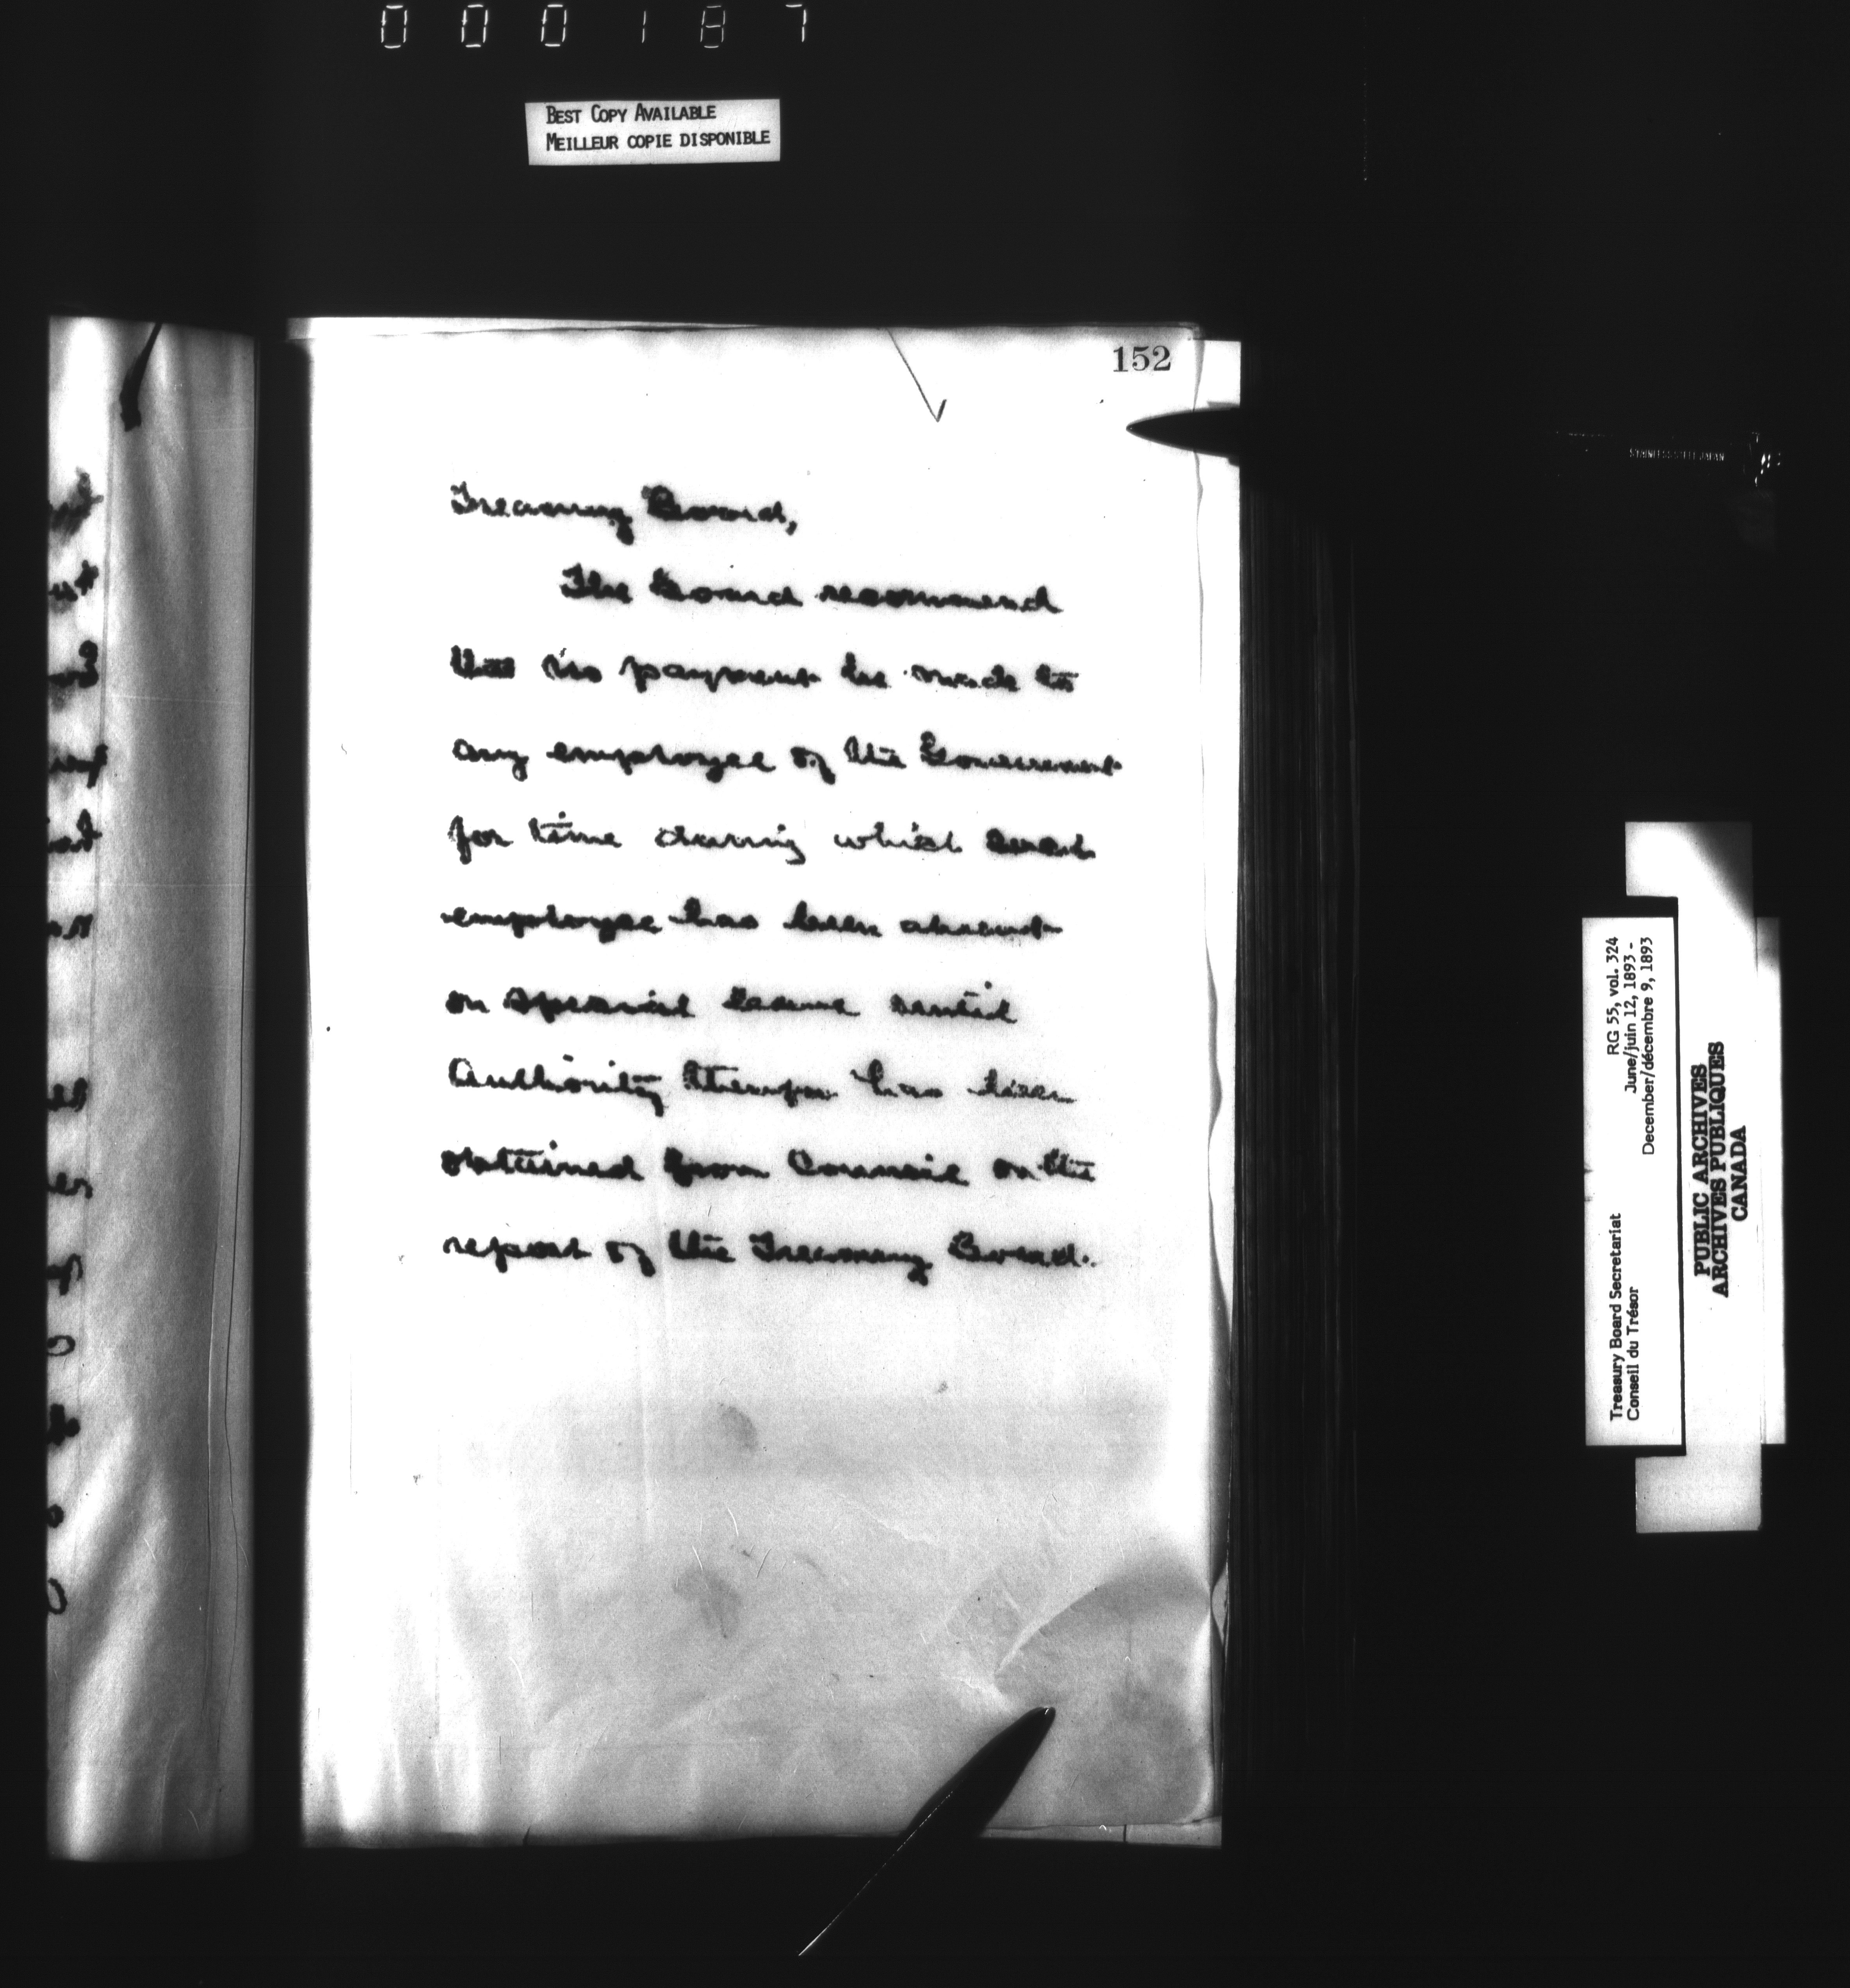 000187
BEST COPY AVAILABLE
MEILLEUR COPIE DISPONIBLE
152
Treasury Board,
The Board recommend
that no payment be made to
any employee of the Government
for time during which such
employee has been absent
on special leave until
Authority therefor has been
obtained from Council on the
report of the Treasury Board.
STAINLESS STEEL JAPAN
Treasury Board Secretariat RG 55, vol. 324
Conseil du Trésor June/juin 12, 1893 -
December/décembre 9, 1893
PUBLIC ARCHIVES
ARCHIVES PUBLIQUES
CANADA